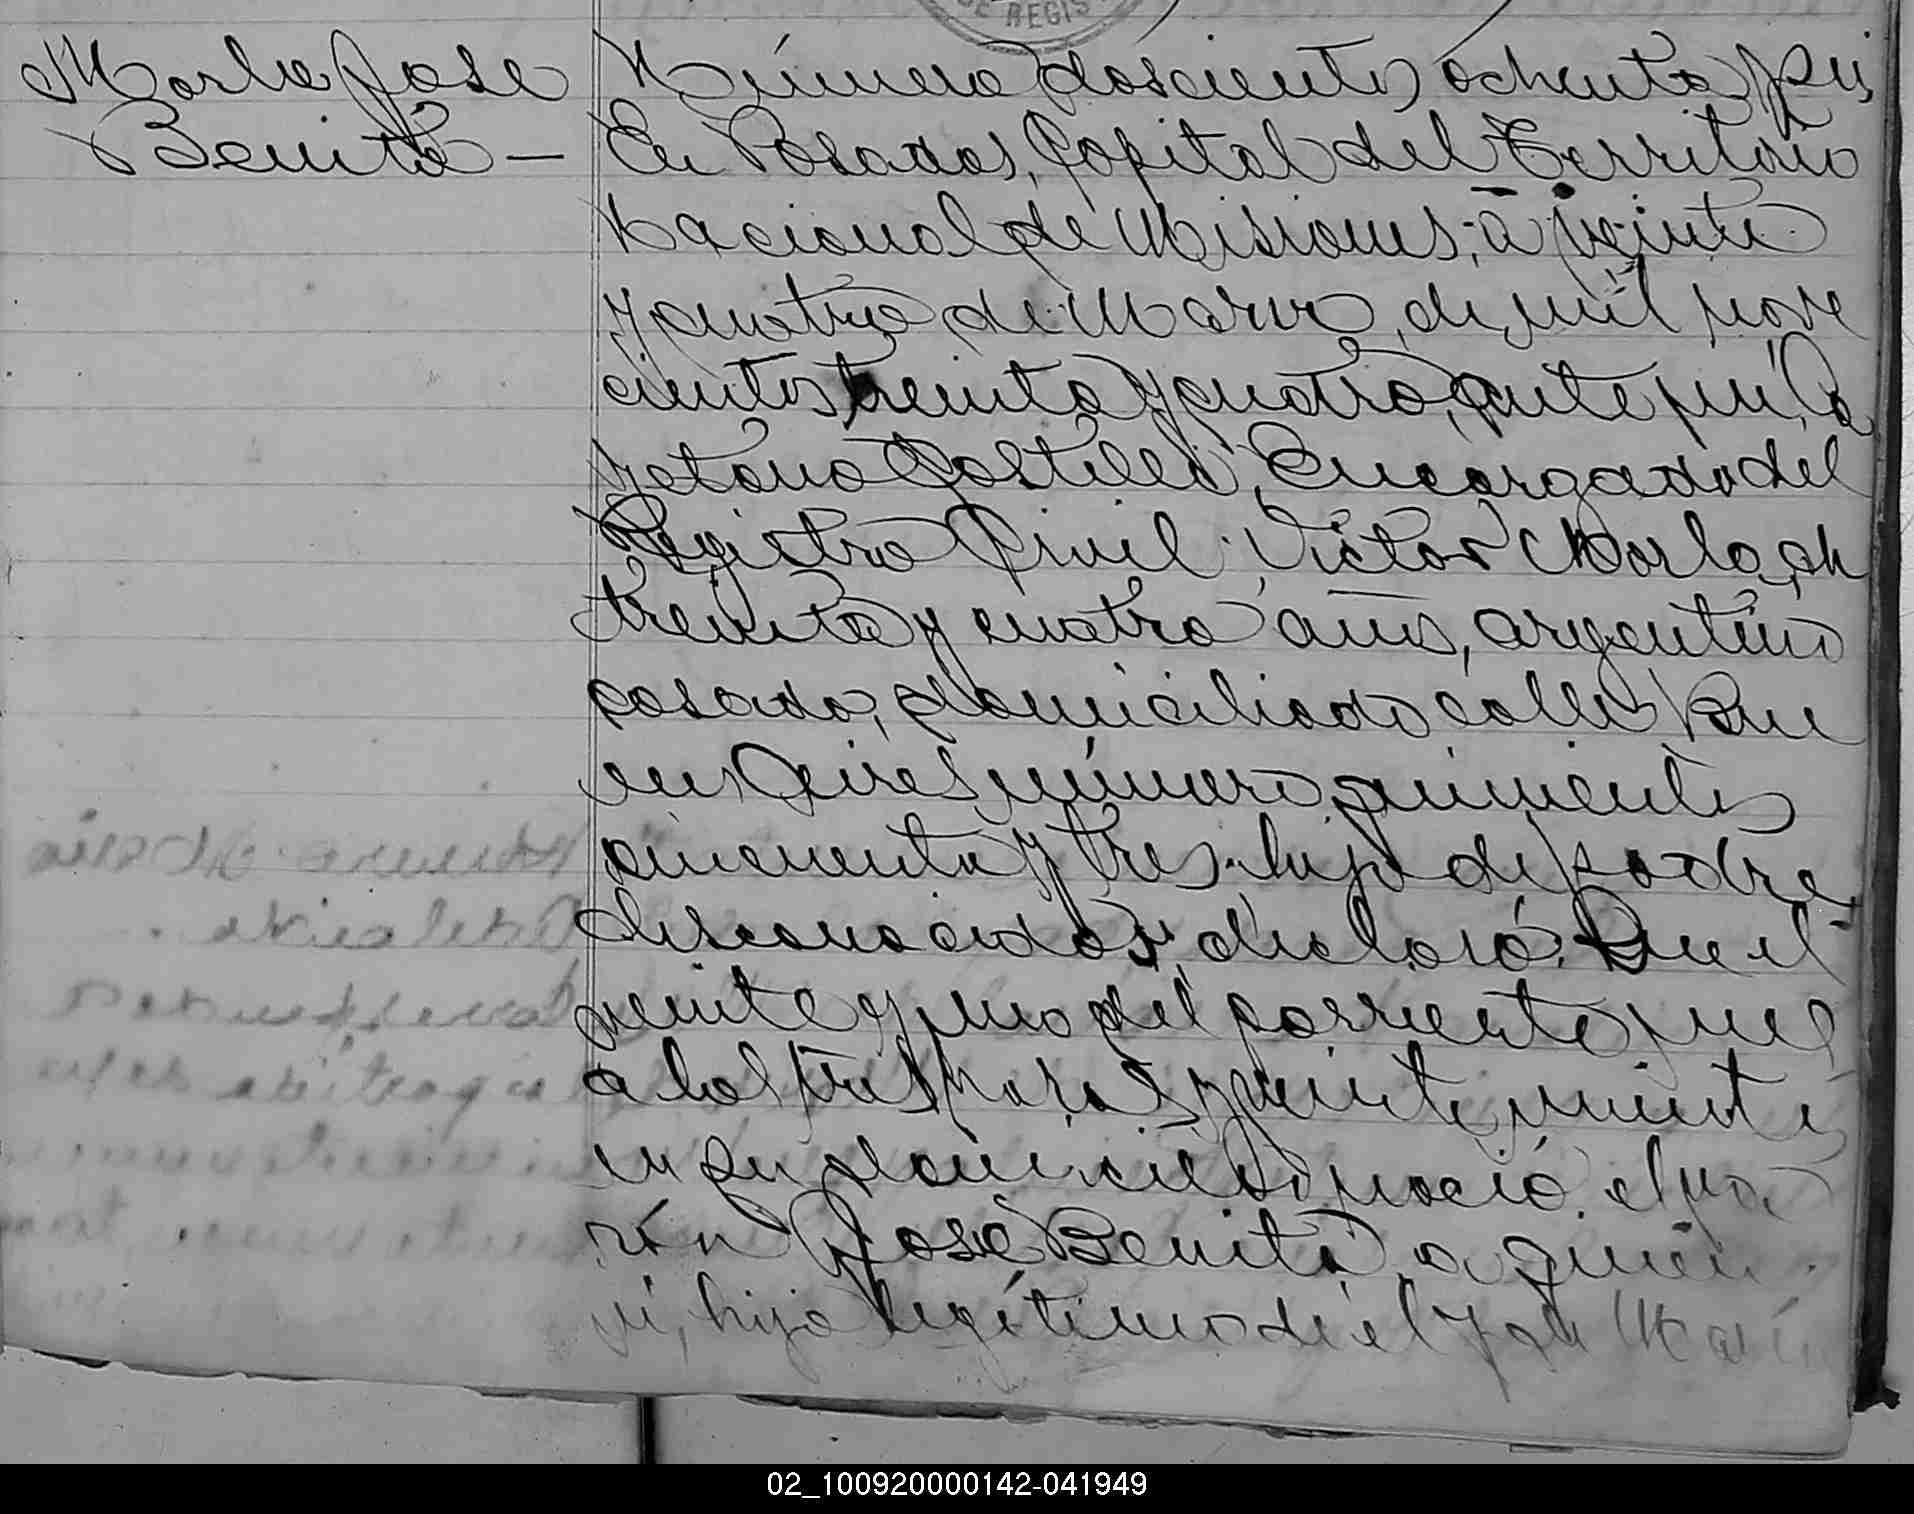 DE REGIS
Morla José
Benito —
Número doscientos ochenta y seis
En Posadas, Capital del Territorio
Nacional de Misiones, a veinte
y cuatro de Marzo de mil nove
cientos treinta y cuatro, ante mí, Ca
yetano Castillo, Encargado del
Registro Civil, Victor Morla, de
treinta y cuatro años, argentino
casado, domiciliado calle Bue
nos Aires número quinientos
cincuenta y tres, hijo de padre
desconocido, declaró: Que el
veinte y uno del corriente mes
a las tres horas y veinte minutos
en su domicilio nació el va
rón José Benito, a quien
vi, hijo legítimo de él y de Marí
02_100920000142-041949